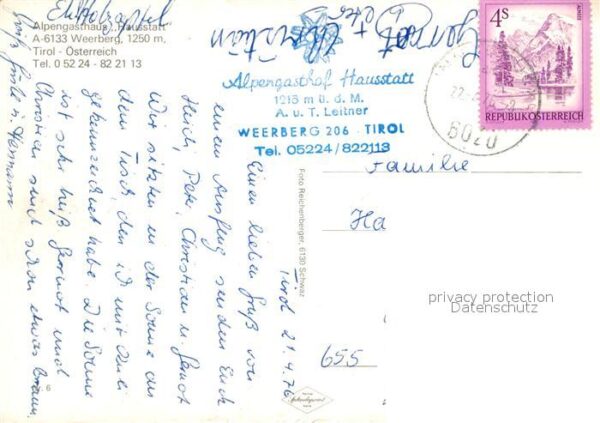 Alpengasthaus „Hausstatt"
A-6133 Weerberg, 1250 m,
Tirol - Österreich
Tel. 0 52 24 - 82 21 13
Alpengasthof Hausstatt
1215 m ü. d. M.
A. u. T. Leitner
WEERBERG 206 · TIROL
Tel. 05224/822113
4S
REPUBLIK ÖSTERREICH
6020
Familie
Ha
655
privacy protection
Datenschutz
Foto Reichenberger, 6130 Schwaz
Tirol 21.4.76
Einen lieben Gruß von
einem Ausflug senden Euch
Heidi, Peter, Christian u. Gernot
Wir sitzen in der Sonne an
dem Tisch, den ich mit
gekennzeichnet habe. Die Sonne
ist sehr heiß, Gernot und
Christian sind schon etwas braun.
Gernot
Peter
Christian